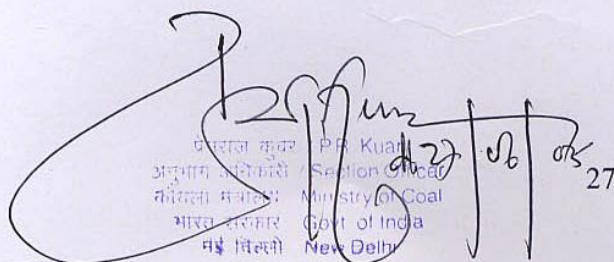 प्रेमराज कुवर / P.R. Kuar
अनुभाग अधिकारी / Section Officer
कोयला मंत्रालय Ministry of Coal
भारत सरकार Govt of India
नई दिल्ली New Delhi
27